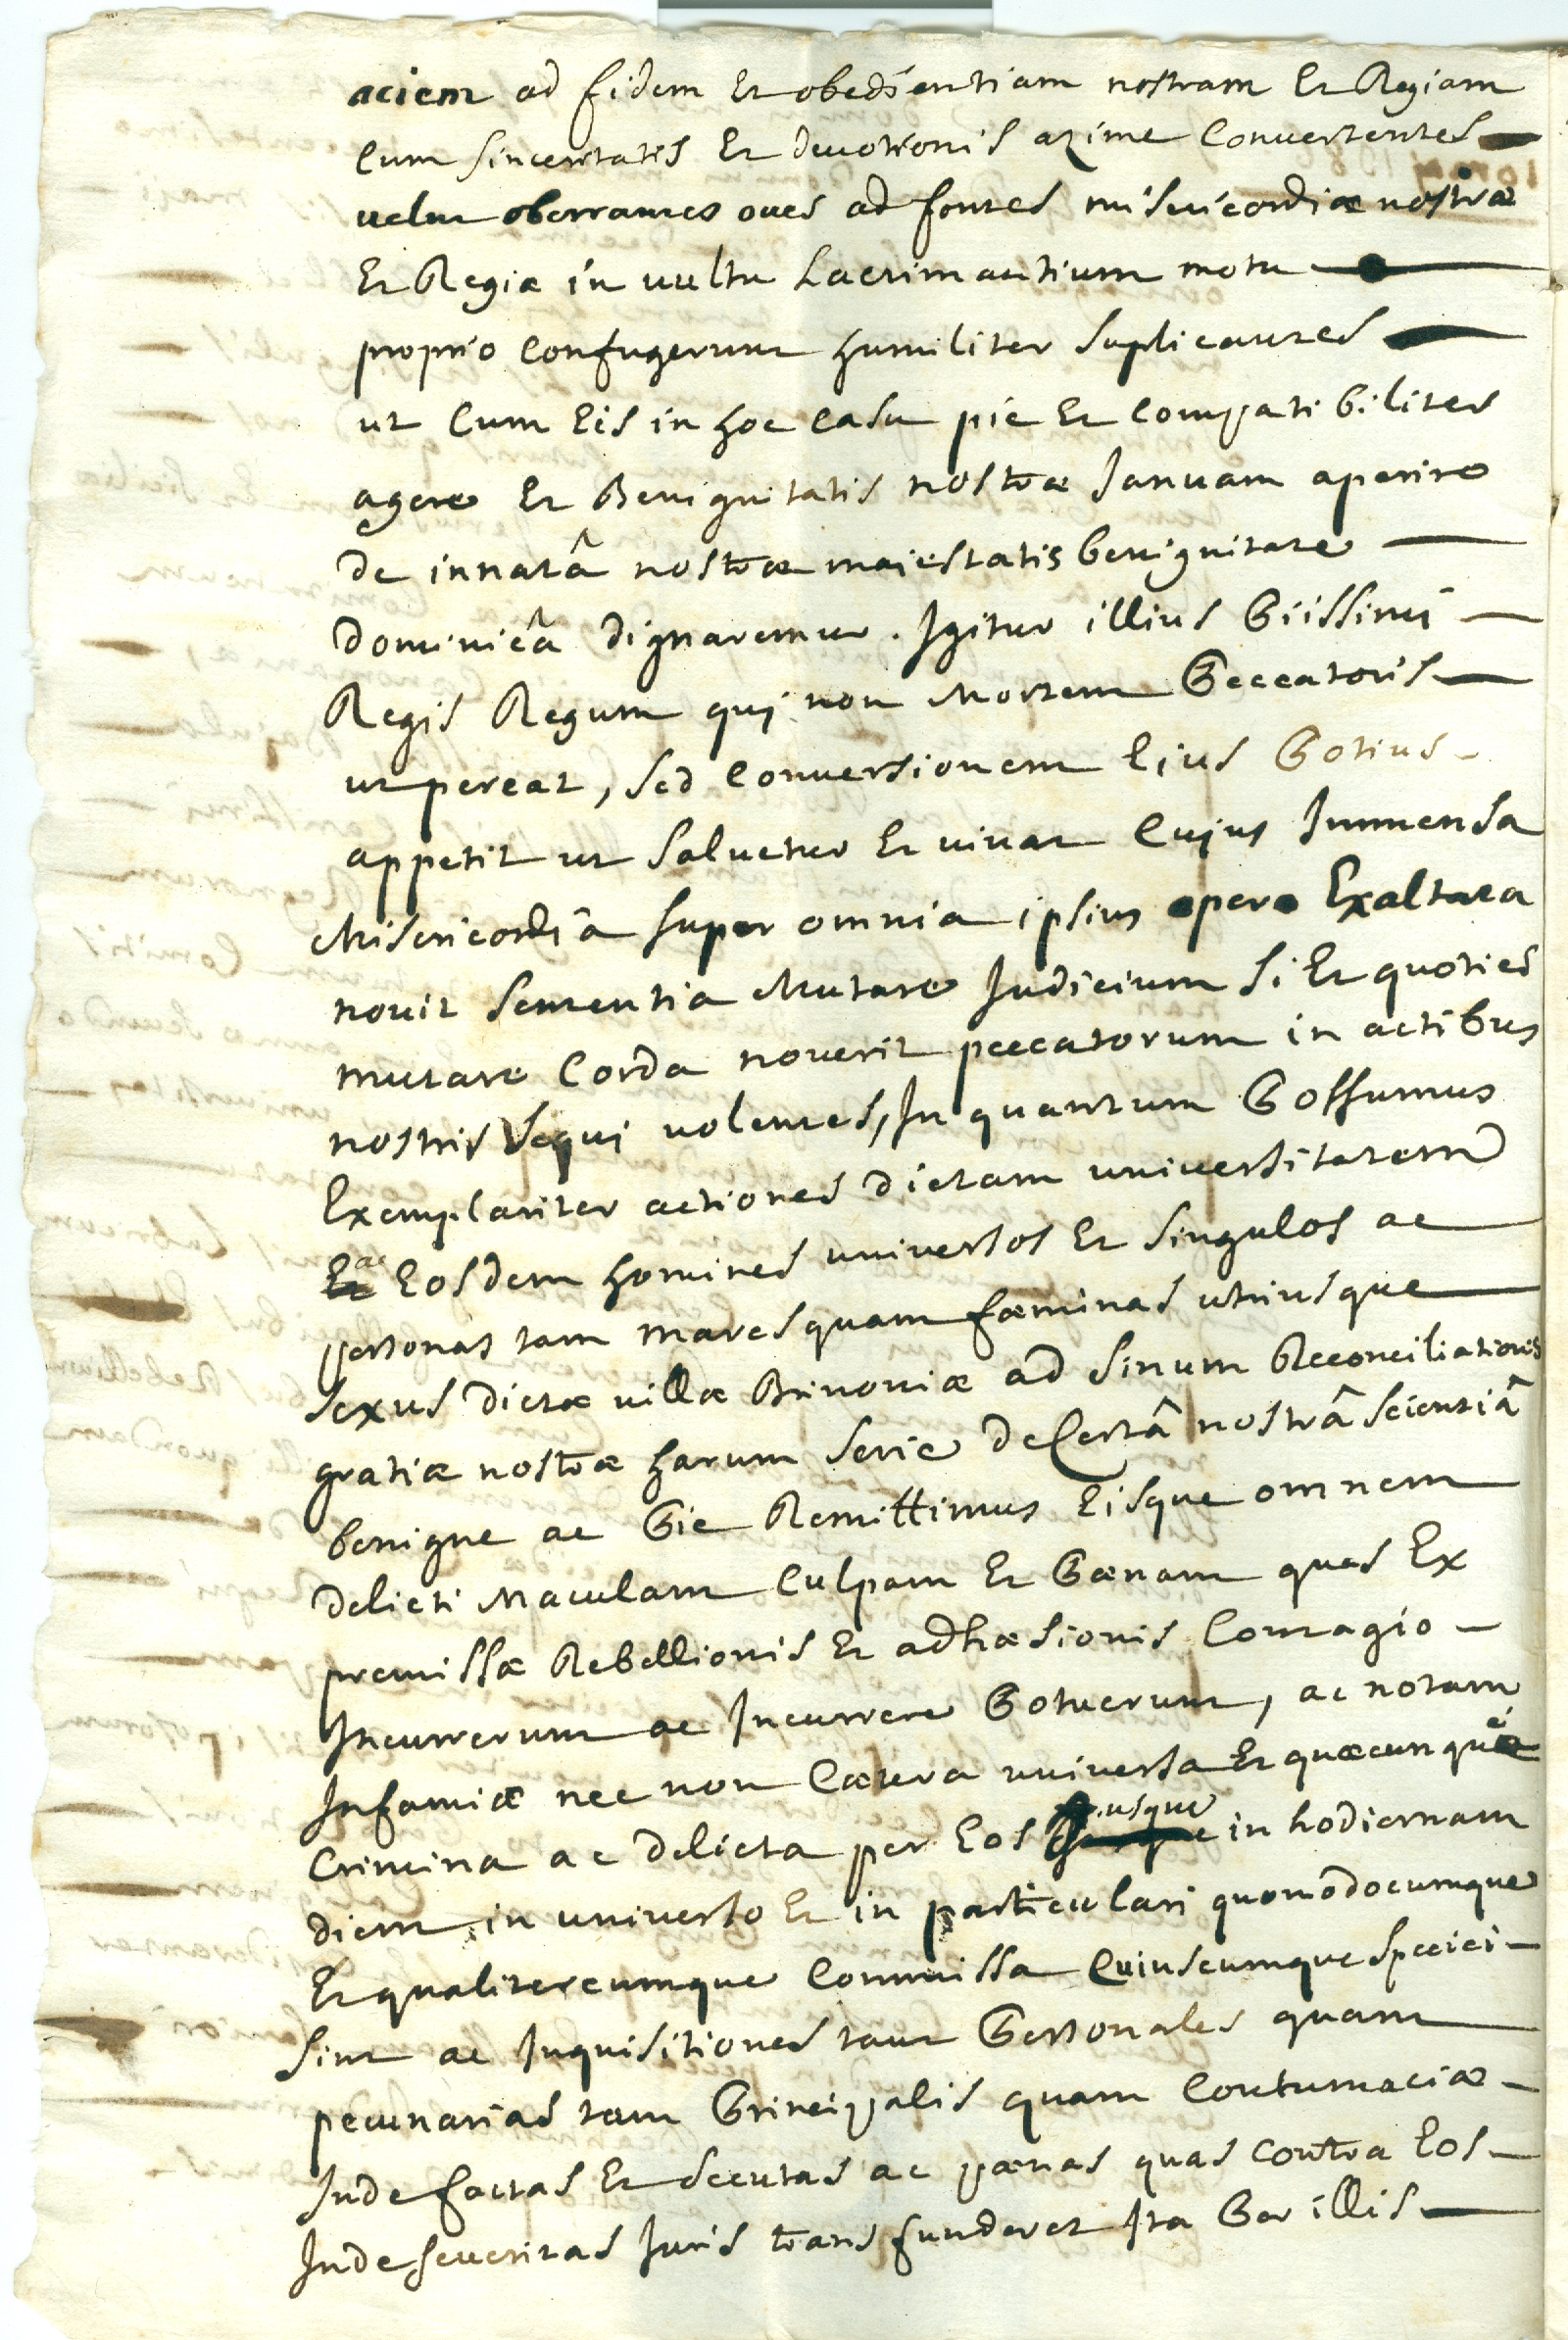 aciem ad fidem Et obedientiam nostram Et Regiam
Cum sinceritatis Et devotionis azime Convertentes
velut oberrantes oves ad fontes misericordiæ nostræ
Et Regiæ in vultu Lacrimantium motu
proprio Confugerunt humiliter suplicantes
ut Cum Eis in hoc Casu pie Et Compatibiliter
agere Et Benignitatis nostræ Januam aperire
de innatâ nostræ maiestatis benignitate
Dominicâ dignaremur. Igitur illius Piissimi
Regis Regum qui non Mortem Peccatoris
ut pereat, sed Conversionem Ejus Potius
appetit ut salvetur Et vivat Cujus Immensa
Misericordiâ super omnia ipsius opere Exaltata
novit sententia Mutare Judicium si Et quoties
mutare Corda noverit peccatorum in actibus
nostris sequi volentes, In quantum Possumus
Exemplariter actiones dictam universitatem
Et ac Eosdem homines universos Et singulos ac
personas tam mares quam fæminas utriusque
sexus dictæ villæ Brinoniæ ad sinum Reconciliationis
gratiæ nostræ harum serie de Certâ nostrâ scientiâ
benigne ac Pie Remittimus Eisque omnem
delicti Maculam Culpam Et Pænam quas Ex
premissæ Rebellionis Et adhæsionis Contagio
Incurrerunt ac Incurrere Potuerunt, ac notam
Infamiæ nec non Cætera universa Et quæcunque
Crimina ac delicta per Eos usque in hodiernam
diem in universo Et in particulari quomodocumque
Et qualitercumque Commissa Cuiuscumque speciei
sint ac Inquisitiones tam Personales quam
pecunarias tam Principalis quam Contumaciæ
Inde factas Et secutas ac pænas quas contra Eos
Inde severitas Juris transfunderet Ita Per illis